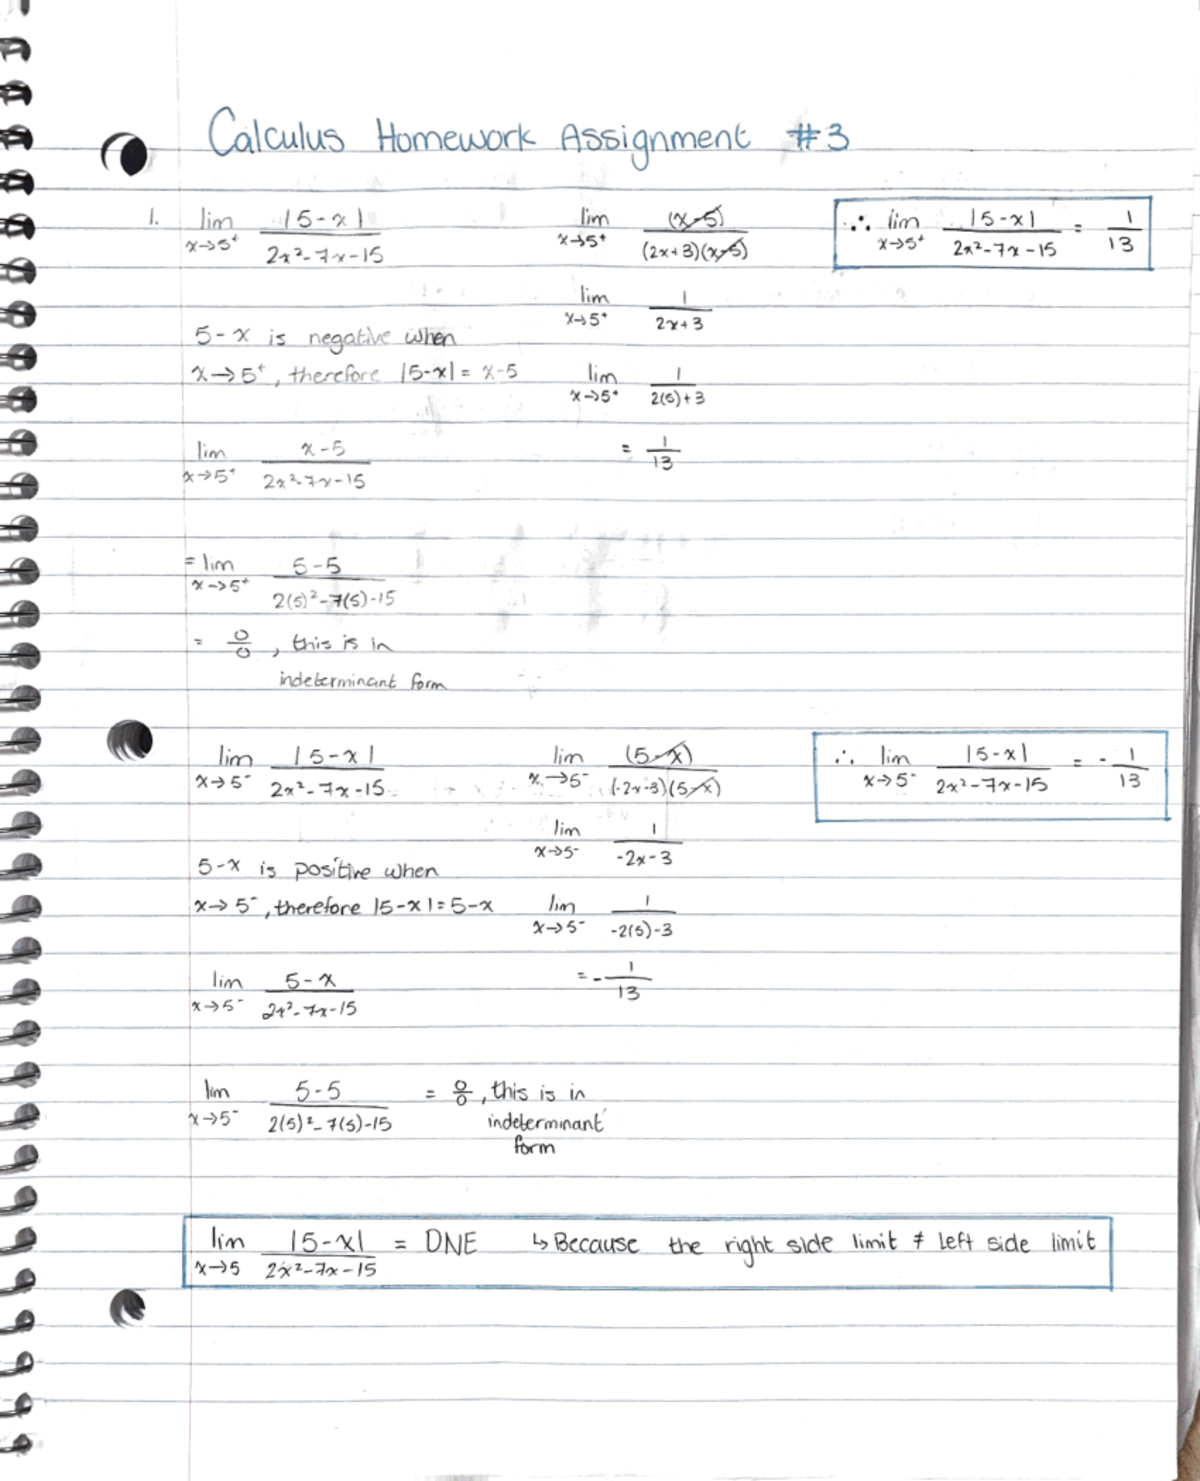 Calculus Homework Assignment #3
1. lim x→5⁺ |5-x| / 2x²-7x-15
5-x is negative when
x→5⁺, therefore |5-x| = x-5
lim x→5⁺ x-5 / 2x²-7x-15
= lim x→5⁺ 5-5 / 2(5)²-7(5)-15
= 0/0, this is in
indeterminant form
lim x→5⁺ (x-5) / (2x+3)(x-5)
lim x→5⁺ 1 / 2x+3
lim x→5⁺ 1 / 2(5)+3
= 1/13
∴ lim x→5⁺ |5-x| / 2x²-7x-15 = 1/13
lim x→5⁻ |5-x| / 2x²-7x-15
5-x is positive when
x→5⁻, therefore |5-x| = 5-x
lim x→5⁻ 5-x / 2x²-7x-15
lim x→5⁻ 5-5 / 2(5)²-7(5)-15 = 0/0, this is in
indeterminant
form
lim x→5⁻ (5-x) / (-2x-3)(5-x)
lim x→5⁻ 1 / -2x-3
lim x→5⁻ 1 / -2(5)-3
= -1/13
∴ lim x→5⁻ |5-x| / 2x²-7x-15 = -1/13
lim x→5 |5-x| / 2x²-7x-15 = DNE ↳ Because the right side limit ≠ left side limit